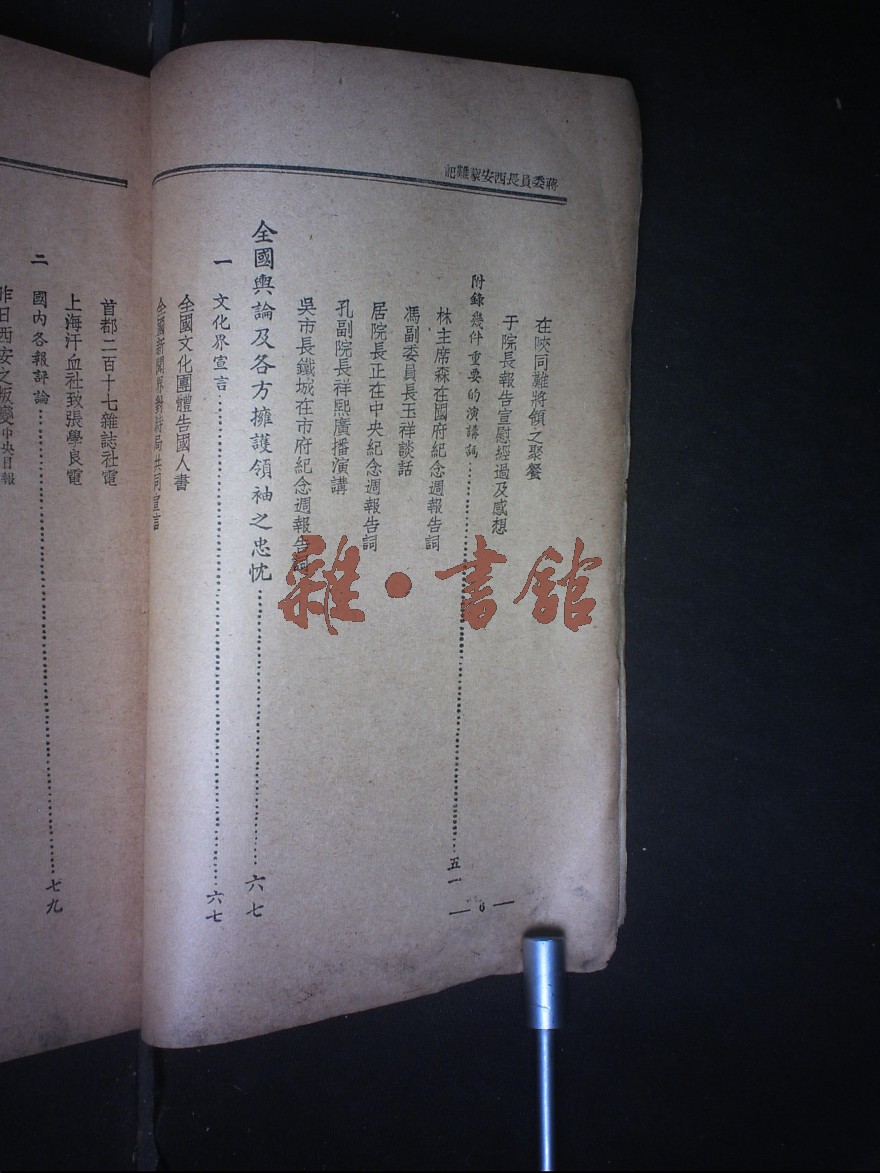 蔣委員長西安蒙難記
在陝同難將領之聚餐
于院長報告宣慰經過及感想
附錄幾件重要的演講詞……五一
林主席森在國府紀念週報告詞
馮副委員長玉祥談話
居院長正在中央紀念週報告詞
孔副院長祥熙廣播演講
吳市長鐵城在市府紀念週報告詞
全國輿論及各方擁護領袖之忠忱……六七
一 文化界宣言……六七
全國文化團體告國人書
全國新聞界對時局共同宣言
6
首都二百十七雜誌社電
上海汗血社致張學良電
二 國內各報評論……七九
昨日西安之叛變中央日報
雜·書館